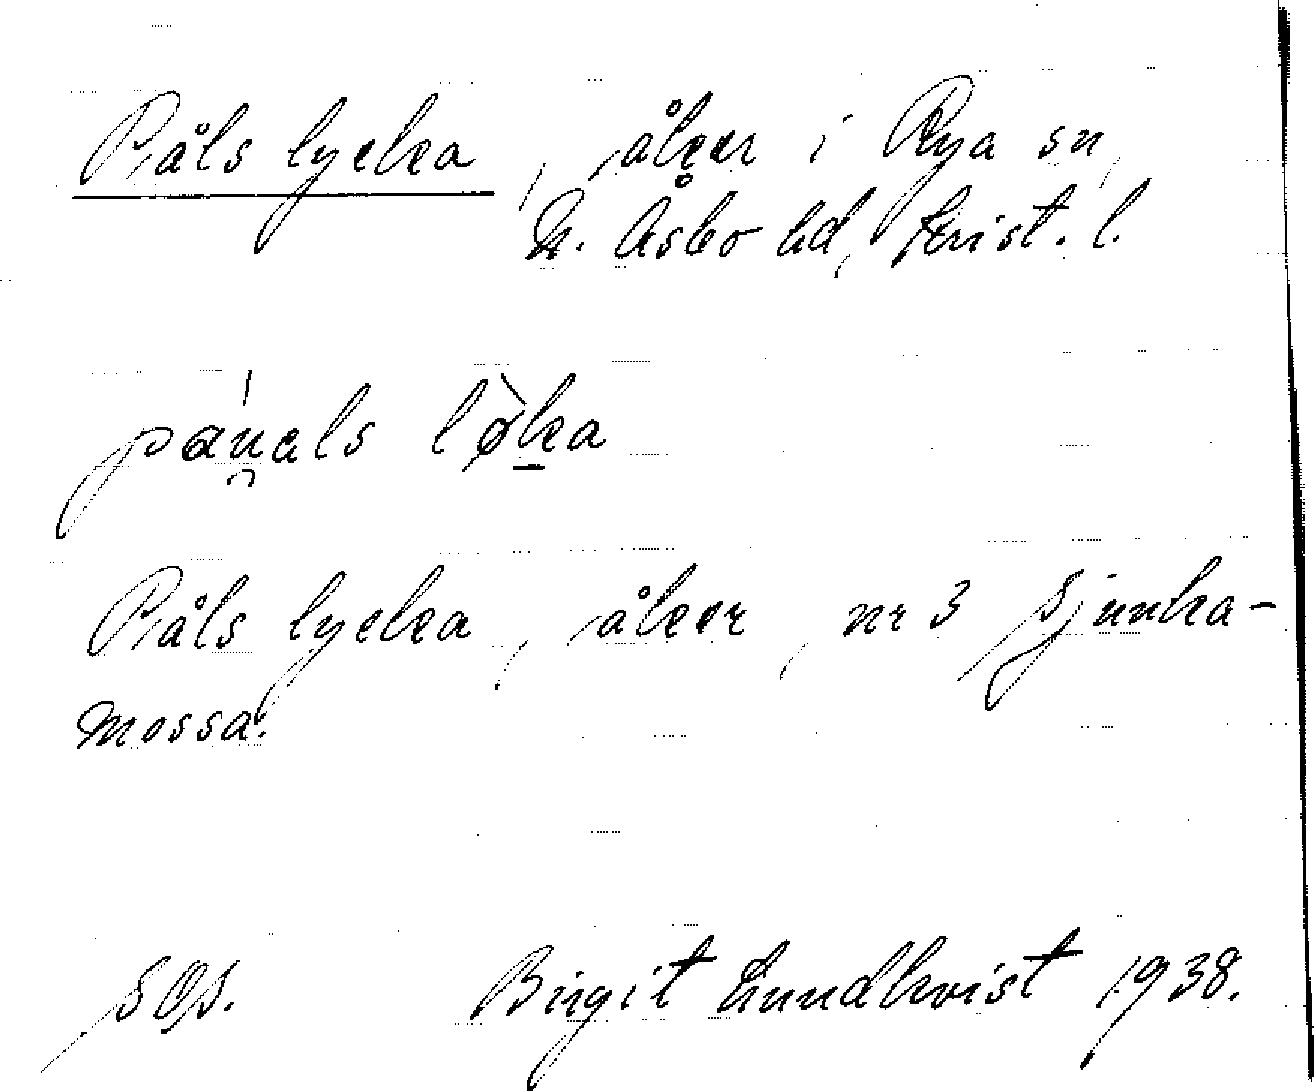 Påls lycka, åker i Rya sn,
N. Åsbo hd, Krist. l.
Påls lycka, åker, nr 3 Sjunka-
mossa.
Birgit Lundkvist 1938.